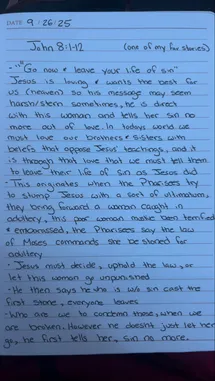 DATE 9.26.25
John 8:1-12 (one of my fav stories)
- "Go now & leave your life of sin"
Jesus is loving & wants the best for
us (heaven) so his message may seem
harsh/stern sometimes, he is direct
with this woman and tells her sin no
more out of love. In todays world we
must love our brothers & sisters with
beliefs that oppose Jesus' teachings, and it
is through that love that we must tell them
to leave their life of sin as Jesus did
- This originates when the Pharisees try
to stump Jesus with a sort of ultimatum,
they bring forward a woman caught in
adultery, this poor woman must've been terrified
& embarrassed, the Pharisees say the law
of Moses commands she be stoned for
adultery
- Jesus must decide, uphold the law, or
let this woman go unpunished
- He then says he who is w/o sin cast the
first stone, everyone leaves
- Who are we to condemn those, when we
are broken. However he doesn't just let her
go, he first tells her, sin no more.